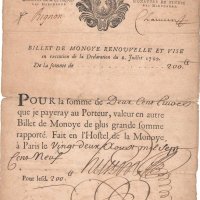 BILLET DE MONOYE RENOUVELLÉ ET VISÉ
en execution de la Declaration du 2. Juillet 1709.
De la somme de 200.tt
POUR la somme de Deux Cens Livres
que je payeray au Porteur, valeur en autre
Billet de Monoye de plus grande somme
rapporté. Fait en l'Hostel de la Monoye,
à Paris le Vingt-deux Aoust mil sept
Cens Neuf
Pour lesd. 200.tt